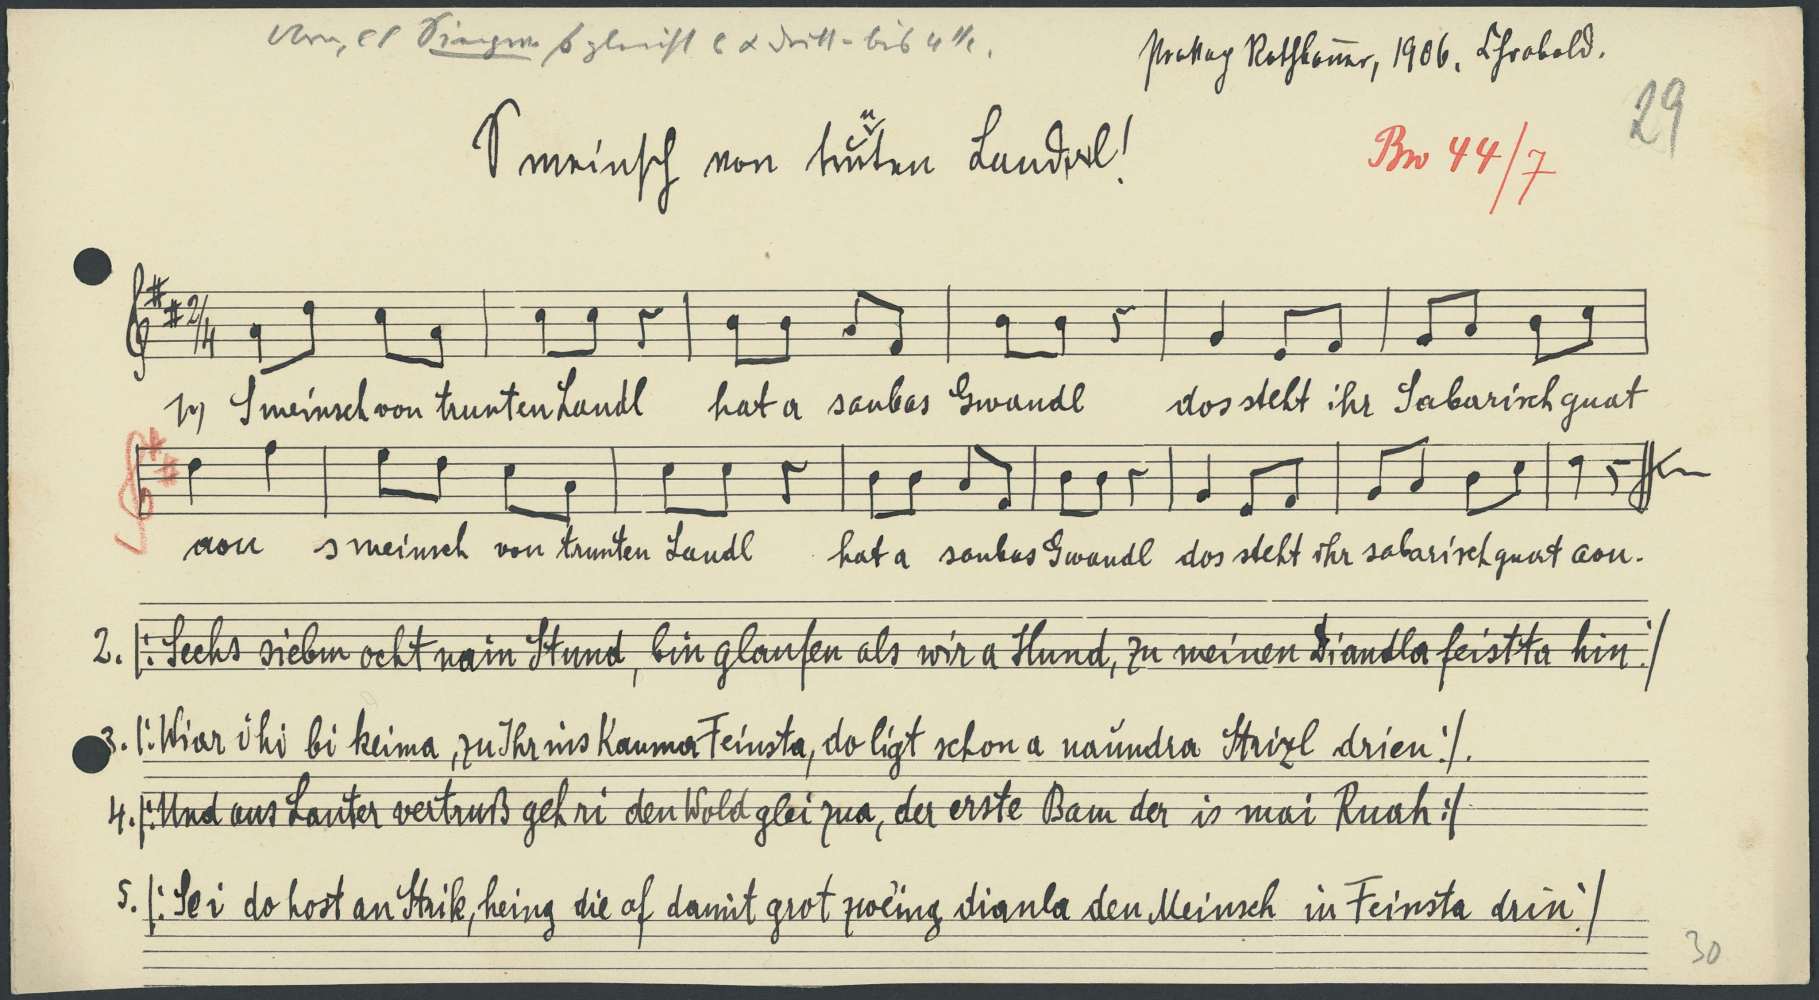 1906.
29
S meinsch von Landl!
Bw 44/7
2/4
1) S meinsch von trunten Landl hat a saubas Gwandl dos steht ihr Sabarisch guat
aon s meinsch von trunten Landl hat a saubas Gwandl dos steht ihr sabarisch guat aon.
2. |: Sechs siebm ocht nain Stund, bin glaufen als wir a Hund, zu meinen Diandla feistta hin :|
3. |: Wiar ihi bi keima, zu Ihr ins Kauma Feinsta, do ligt schon a naundra Strizl drien :|.
4. |: Und aus Lauter vertruß geh ri den Wold glei zua, der erste Bam der is mai Ruah :|
5. |: Sei do host an Strik, heing die af damit grot zweing dianla den Meinsch in Feinsta drin :|
30